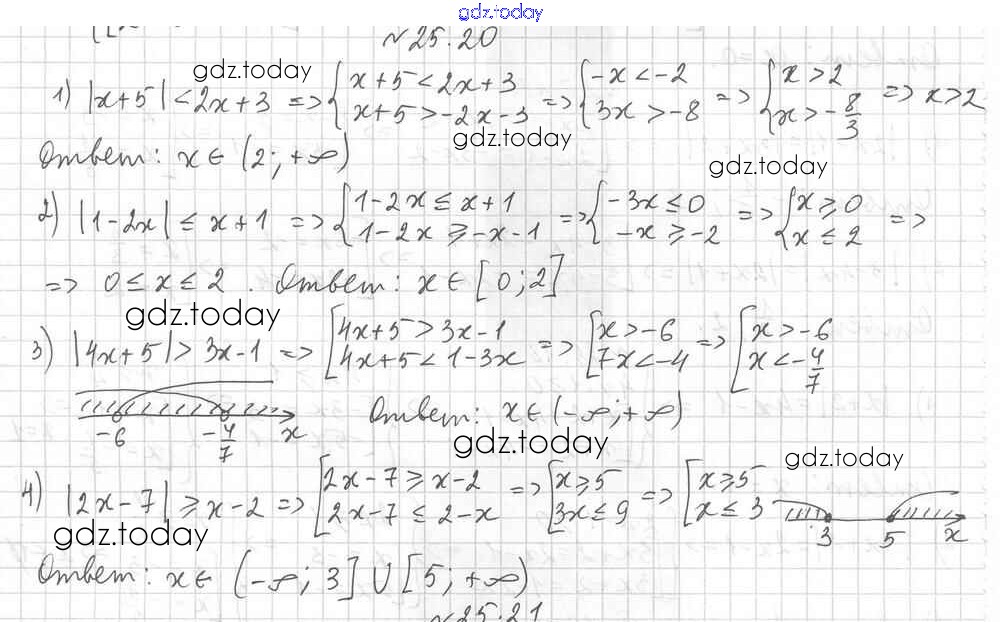 gdz.today
№25.20
gdz.today
1) |x+5| < 2x+3 => { x+5 < 2x+3 ; x+5 > -2x-3 => { -x < -2 ; 3x > -8 => { x > 2 ; x > -8/3 => x > 2
gdz.today
Ответ: x ∈ (2; +∞)
gdz.today
2) |1-2x| ≤ x+1 => { 1-2x ≤ x+1 ; 1-2x ≥ -x-1 => { -3x ≤ 0 ; -x ≥ -2 => { x ≥ 0 ; x ≤ 2 =>
=> 0 ≤ x ≤ 2. Ответ: x ∈ [0; 2]
gdz.today
3) |4x+5| > 3x-1 => [ 4x+5 > 3x-1 ; 4x+5 < 1-3x => [ x > -6 ; 7x < -4 => [ x > -6 ; x < -4/7
-6 -4/7 x
Ответ: x ∈ (-∞; +∞)
gdz.today
gdz.today
4) |2x-7| ≥ x-2 => [ 2x-7 ≥ x-2 ; 2x-7 ≤ 2-x => [ x ≥ 5 ; 3x ≤ 9 => [ x ≥ 5 ; x ≤ 3
3 5 x
gdz.today
Ответ: x ∈ (-∞; 3] ∪ [5; +∞)
№25.21